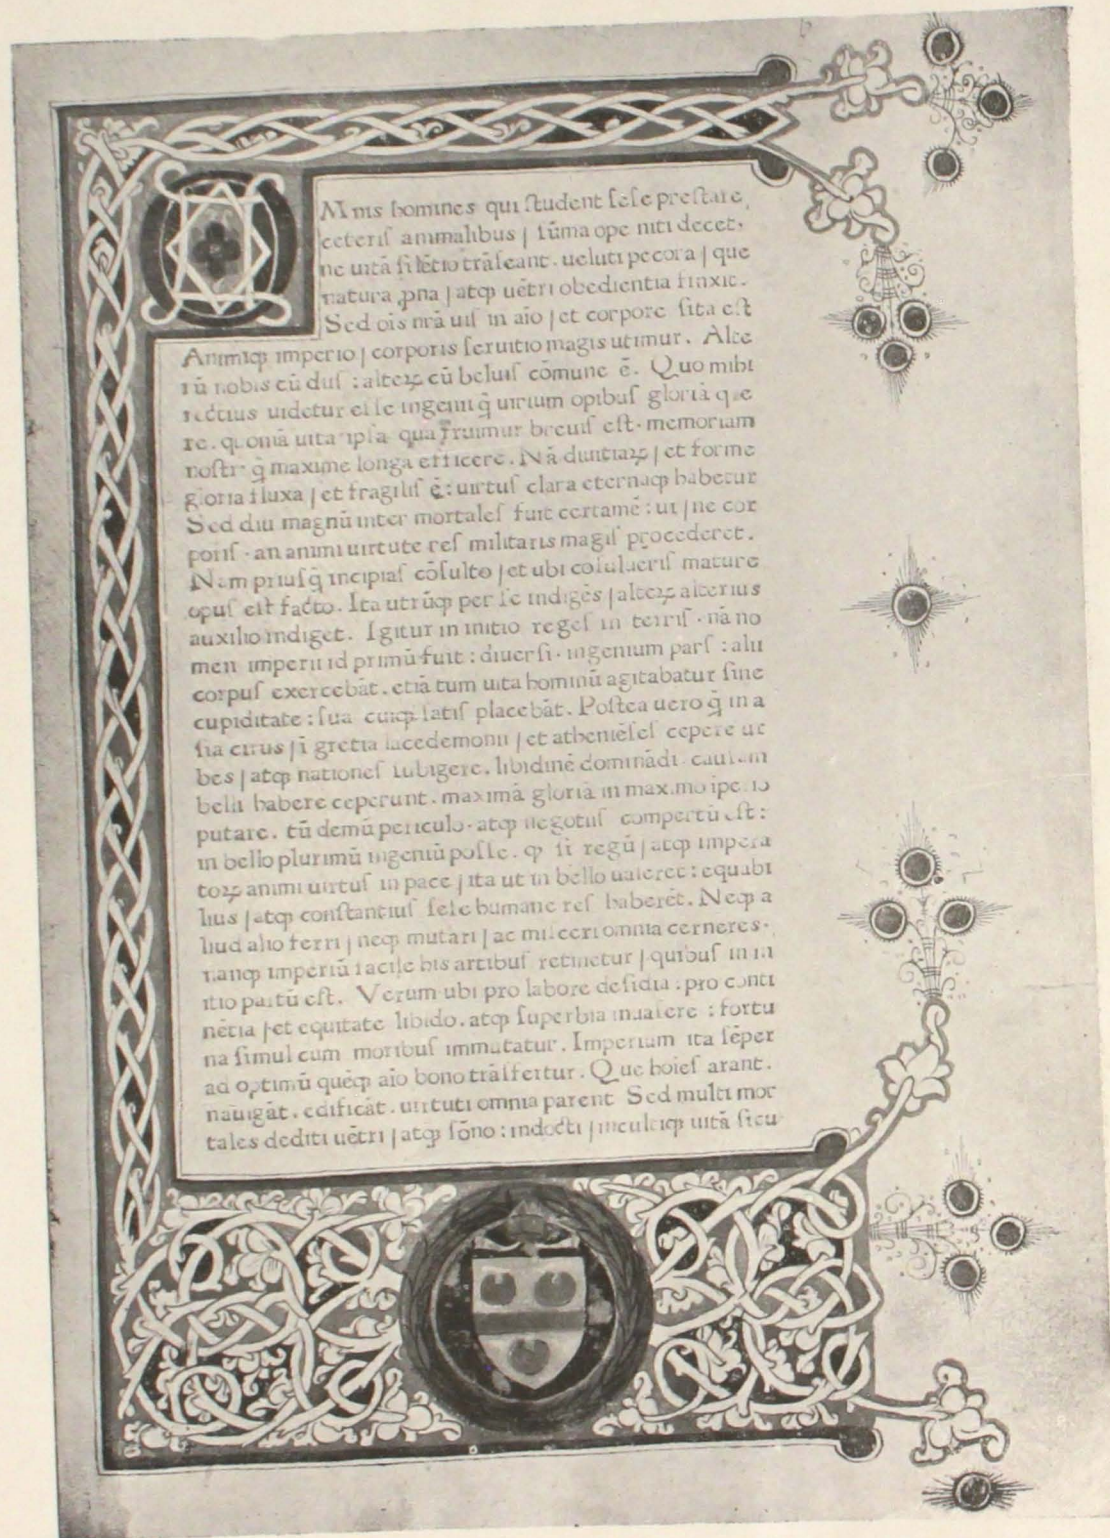 OMnis homines qui student sese prestare
ceteris animalibus / sūma ope niti decet.
ne uitā silētio trāseant. ueluti pecora / que
natura ꝓna / atqꝫ uētri obedientia finxit.
Sed oīs nrā uis in aīo / et corpore sita est
Animiqꝫ imperio / corporis seruitio magis utimur. Alte
rū nobis cū dijs : alteꝝ cū beluis cōmune ē. Quo mihi
rectius uidetur esse ingenij q̄ uirium opibus gloriā que
re. quoniā uita ipsa qua fruimur breuis est. memoriam
nostri q̄ maxime longa efficere. Nā diuitiaꝝ / et forme
gloria fluxa / et fragilis ē : uirtus clara eternaqꝫ habetur
Sed diu magnū inter mortales fuit certamē : ui / ne cor
poris . an animi uirtute res militaris magis procederet.
Nam priusq̄ incipias cōsulto / et ubi cōsulueris mature
opus est facto. Ita utrūqꝫ per se indigēs / alteꝝ alterius
auxilio indiget. Igitur in initio reges in terris . nā no
men imperii id primū fuit : diuersi . ingenium pars : alii
corpus exercebāt. etiā tum uita hominū agitabatur sine
cupiditate : sua cuiqꝫ satis placebāt. Postea uero q̄ in a
sia cirus / ī gretia lacedemonii / et atheniēses cepere ur
bes / atqꝫ nationes subigere. libidinē dominādi causam
belli habere ceperunt. maximā gloriā in maximo īperio
putare. tū demū periculo . atqꝫ negotiis compertū est :
in bello plurimū ingeniū posse. qꝫ si regū / atqꝫ impera
toꝝ animi uirtus in pace / ita ut in bello ualeret : equabi
lius / atqꝫ constantius sese humane res haberēt. Neqꝫ a
liud alio ferri / neqꝫ mutari / ac misceri omnia cerneres.
nanqꝫ imperiū facile his artibus retinetur / quibus in in
itio partū est. Verum ubi pro labore desidia : pro conti
nētia / et equitate libido. atqꝫ superbia inuasere : fortu
na simul cum moribus immutatur. Imperium ita sēper
ad optimū quēqꝫ aīo bono trāsfertur. Que hoīes arant.
nauigāt. edificāt. uirtuti omnia parent Sed multi mor
tales dediti uētri / atqꝫ sōno : indocti / incultiqꝫ uitā sicu